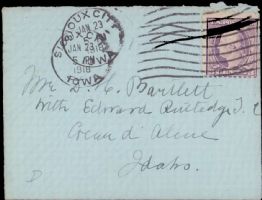 SIOUX CITY
JAN 23
5 PM
1918
IOWA
Mr. D. C. Bartlett
With Edward Rutledge T. C
Coeur d' Alene
Idaho.
D